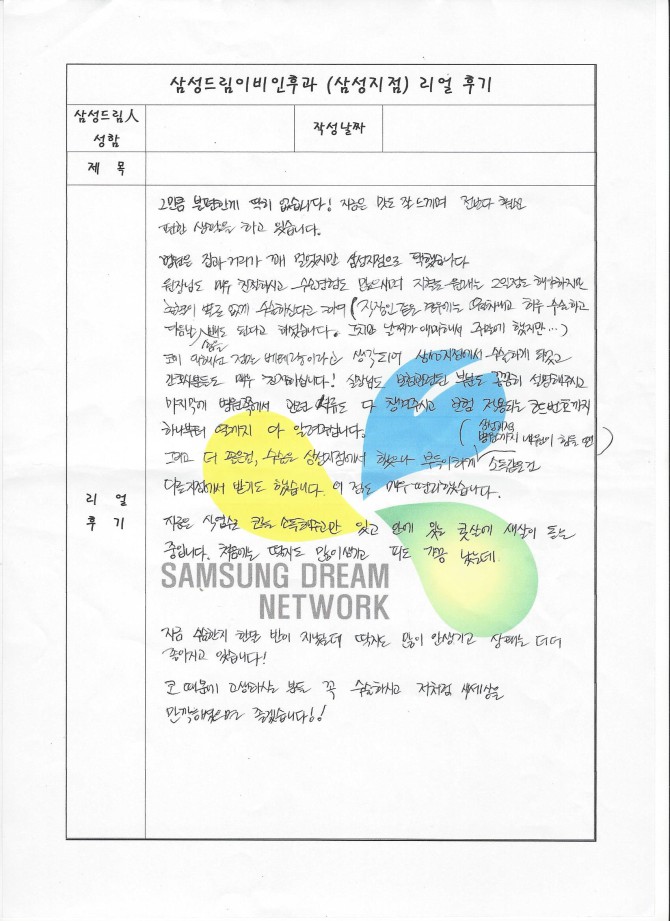 삼성드림이비인후과 (삼성지점) 리얼 후기
삼성드림人
성함
작성날짜
제 목
리 얼
후 기
그만큼 불편한게 딱히 없습니다! 지금은 맛도 잘 느끼며 전보다 훨씬
편한 생활을 하고 있습니다.
병원은 집과 거리가 꽤 멀었지만 삼성지점으로 택했습니다
원장님도 매우 친절하시고 수술경험도 많으시며 지점도 원래는 2인정도 해야하지만
없게 수술하신다고 하여 (직장인 같은 경우에는 하루 수술하고
다음날 출근도 된다고 하셨습니다. 그치만 날짜가 애매해서 주말에 했지만...)
코에 점은 베테랑이라고 생각되어 삼성지점에서 수술하게 되었고
간호사분들도 매우 친절하십니다! 실장님도 보험관련된 부분도 꼼꼼히 설명해주시고
마지막에 병원쪽에서 관련 서류도 다 챙겨주시고 보험 적용되는 코드번호까지
하나부터 열까지 다 알려주십니다.
그리고 더 좋은건, 수술은 삼성지점에서 했으나 부득이하게 소독같은건
(삼성지점 병원까지 내원이 힘들 땐)
다른지점에서 받기도 했습니다. 이 점도 매우 편리했습니다.
지금은 식염수 코를 소독해주고만 있고 안에 있는 콧살에 새살이 돋는
중입니다. 처음에는 딱지도 많이생기고 피도 가끔 났는데
SAMSUNG DREAM
NETWORK
지금 수술한지 한달 반이 지났는데 딱지도 많이 안생기고 상태는 더더
좋아지고 있습니다!
코 때문에 고생하시는 분들 꼭 수술하시고 저처럼 새세상을
만끽하셨으면 좋겠습니다!!